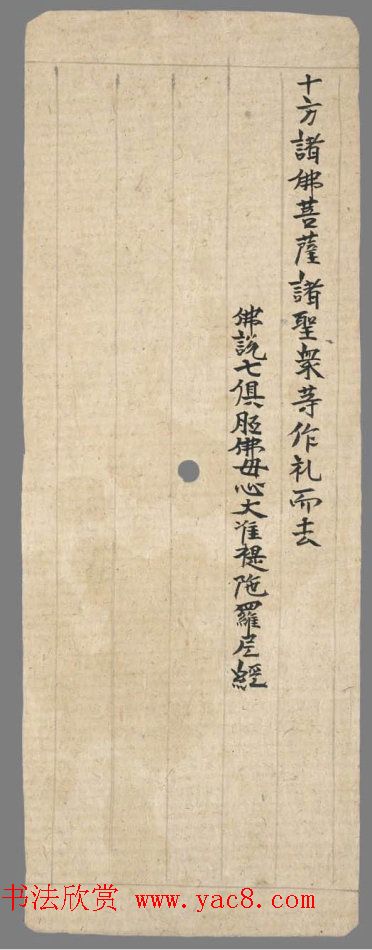 十方諸佛菩薩諸聖衆等作礼而去
佛説七俱胝佛母心大准提陁羅尼經
书法欣赏 www.yac8.com